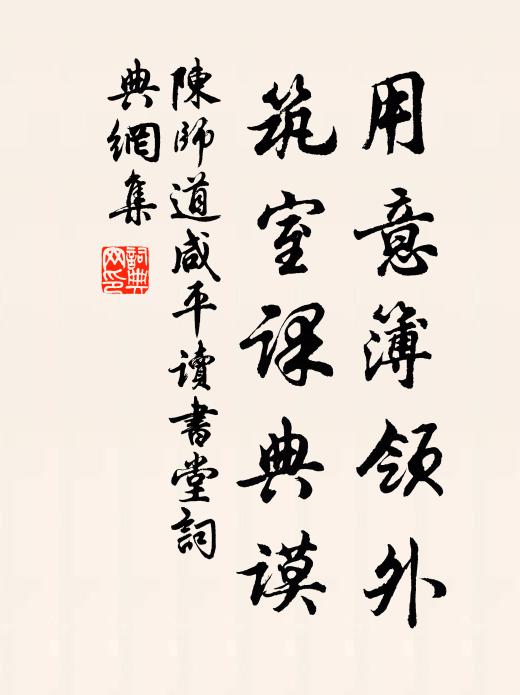 用意簿領外
筑室課典謨
陳師道咸平讀書堂詞
典網集
詞典網印